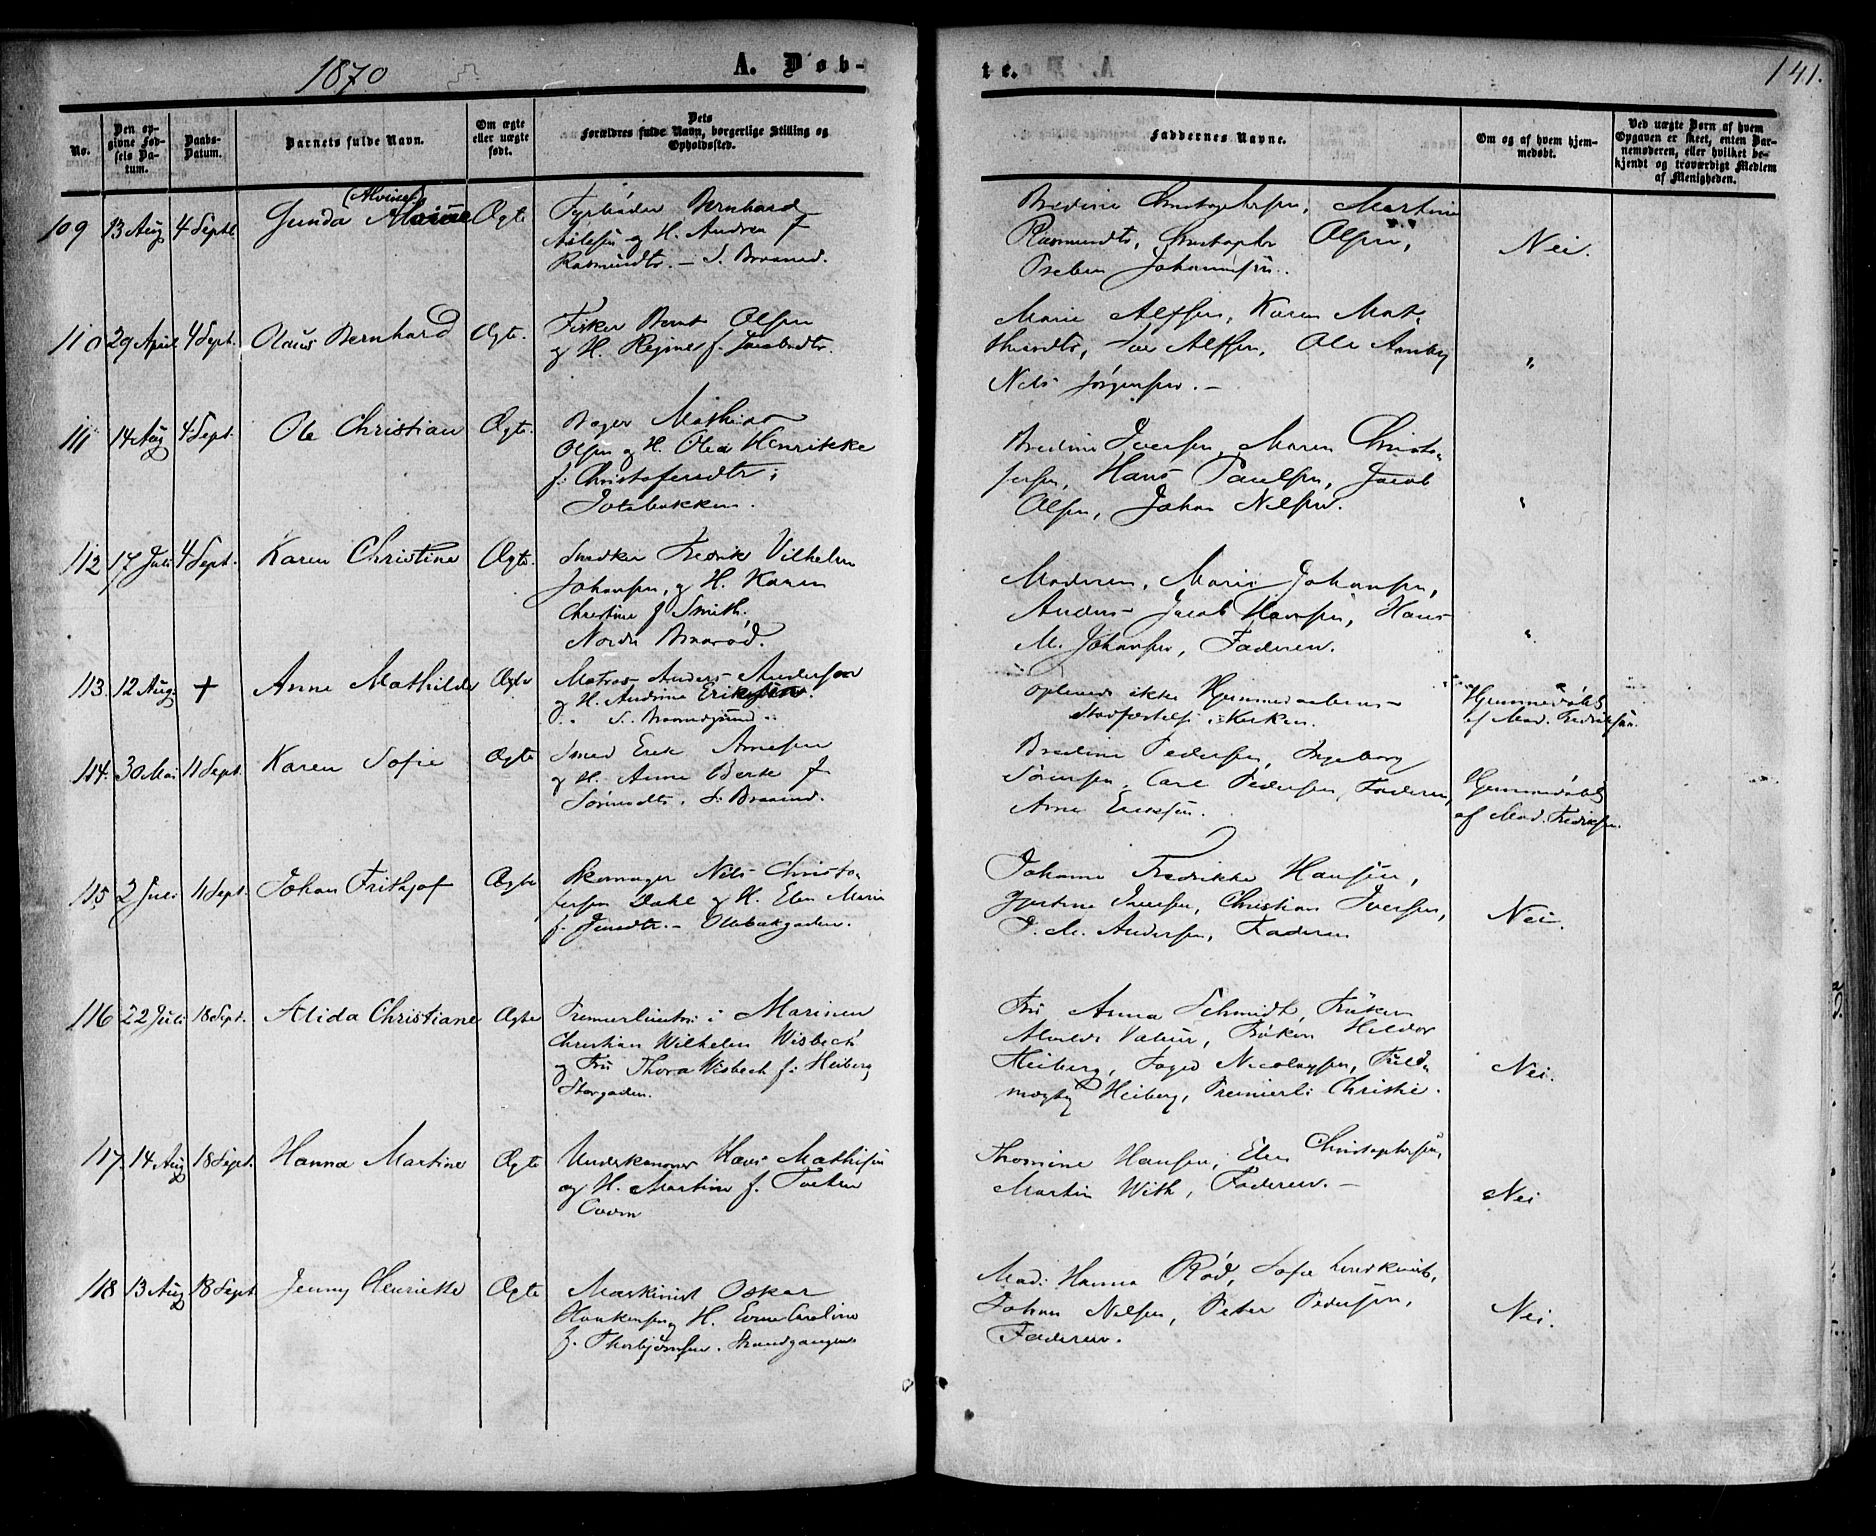 1870
A. Døb-
te.
141.
No.
Den opgivne Fødsels Datum.
Daabs-Datum.
Barnets fulde Navn.
Om ægte eller uægte født.
Dets Forældres fulde Navn, borgerlige Stilling og Opholdssted.
Faddernes Navne.
Om og af hvem hjemmedøbt.
Ved uægte Børn af hvem Opgaven er skeet, enten Barnemoderen, eller hvilket bekjendt og troværdigt Medlem af Menigheden.
109 13 Aug 4 Septb
(Alvine)
Gunda Alvine
Ægte
Fyrbøder Bernhard
og H. Andrea f
Rasmusdtr. -
Bredine Christophersen, Martine
Rasmusdtr, Christopher Olsen,
Preben Johannesen.
Nei.
110 29 April 4 Sept.
Olaus Bernhard
Ægte.
Fisker Bernt Olsen
og H. Regine f. Jacobsdtr.
Marie Alfsen, Karen Mat-
hisdtr, Alfsen, Ole
Nils Jørgensen. -
"
111 14 Aug 4 Sept.
Ole Christian
Ægte.
Bager Mathias
Olsen og H. Olea Henrikke
f. Christofersdtr.
Bredine Iversen, Maren Christo-
fersen, Hans Paulsen, Jacob
Olsen, Johan Nilsen.
"
112 17 Juli 4 Sept.
Karen Christine
Ægte.
Snedker Fredrik Vilhelm
Johansen, og H. Karen
Christine f Smith,
Nordre
Moderen, Marie Johansen,
Anders Jacob Hansen, Hans
M. Johansen, Faderen.
"
113. 12 Aug. +
Anne Mathilde
Ægte
Matros Anders Anderssen
og H. Andrine Eriksen
oplevede ikke Hjemmedaabens
Stadfæstelse i Kirken.
Hjemmedøbt
af Mad. Fredriksen.
114. 30 Mai 11 Sept.
Karen Sofie
Ægte
Smed Erik Arnesen
og H. Anne Berte f
Sørensdtr.
Bredine Pedersen, Ingeborg
Sørensen, Carl Pedersen, Faderen,
Arne Eriksen.
Hjemmedøbt
af Mad. Fredriksen.
115. 2 Juli 11 Sept.
Johan Frithjof
Ægte
Skomager Nils Christo-
fersen Dahl og H. Elen Marie
f. Jensdtr. -
Johanne Fredrikke Hansen,
Gjertine Iversen, Christian Iversen,
J. M. Andersen, Faderen
Nei.
116 22 Juli 18 Sept.
Alida Christiane
Ægte
Premierlieutn. i Marinen
Christian Wilhelm Wisbech
og Fru Thora Wisbech f. Heiberg
Storgaden.
Fru Anna Schmidt, Frøken
Frøken Hilda
Heiberg, Foged Nicolaysen, Fuld-
mægtig Heiberg, Premierl. Christie.
Nei.
117. 14 Aug 18 Sept.
Hanna Martine
Ægte
Underkanoner Hans Mathisen
og H. Martine f.
Thomine Hansen, Elen Christophersen,
Martin With, Faderen. -
Nei
118 13 Aug 18 Sept
Jenny Henriette
Ægte
Maskinist Oskar
Haakensen og H. Caroline
f. Thorbjørnsen.
Mad. Hanna Rød, Sofie
Johan Nilsen, Peter Pedersen,
Faderen.
Nei.